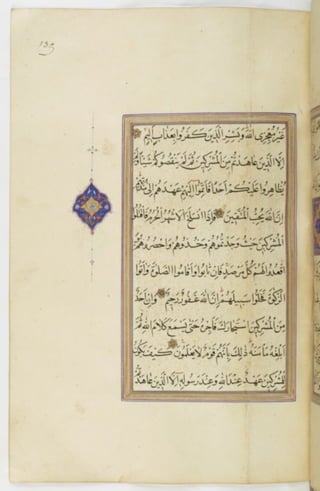 غَيْرُ مُعْجِزِي اللهِ وَبَشِّرِ الَّذِينَ كَفَرُوا بِعَذَابٍ اَلِيمٍ
اِلَّا الَّذِينَ عَاهَدْتُمْ مِنَ الْمُشْرِكِينَ ثُمَّ لَمْ يَنْقُصُوكُمْ شَيْئًا وَلَمْ
يُظَاهِرُوا عَلَيْكُمْ اَحَدًا فَاَتِمُّوا اِلَيْهِمْ عَهْدَهُمْ اِلَى مُدَّتِهِمْ
اِنَّ اللهَ يُحِبُّ الْمُتَّقِينَ فَاِذَا انْسَلَخَ الْاَشْهُرُ الْحُرُمُ فَاقْتُلُوا
الْمُشْرِكِينَ حَيْثُ وَجَدْتُمُوهُمْ وَخُذُوهُمْ وَاحْصُرُوهُمْ وَ
اقْعُدُوا لَهُمْ كُلَّ مَرْصَدٍ فَاِنْ تَابُوا وَاَقَامُوا الصَّلٰوةَ وَاٰتَوُا
الزَّكٰوةَ فَخَلُّوا سَبِيلَهُمْ اِنَّ اللهَ غَفُورٌ رَحِيمٌ وَاِنْ اَحَدٌ
مِنَ الْمُشْرِكِينَ اسْتَجَارَكَ فَاَجِرْهُ حَتَّى يَسْمَعَ كَلَامَ اللهِ ثُمَّ
اَبْلِغْهُ مَأْمَنَهُ ذٰلِكَ بِاَنَّهُمْ قَوْمٌ لَا يَعْلَمُونَ كَيْفَ يَكُونُ
لِلْمُشْرِكِينَ عَهْدٌ عِنْدَ اللهِ وَعِنْدَ رَسُولِهِ اِلَّا الَّذِينَ عَاهَدْتُمْ